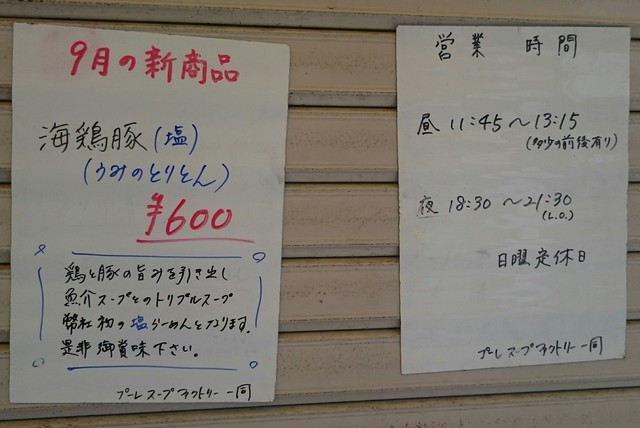 9月の新商品
海鶏豚(塩)
(うみのとりとん)
¥600
鶏と豚の旨みを引き出し
魚介スープとのトリプルスープ
弊社初の塩らーめんとなります。
是非御賞味下さい。
プーレスープファクトリー一同
営業 時間
昼 11:45〜13:15
(多少の前後有り)
夜 18:30 〜21:30
(L.O.)
日曜定休日
プーレスープファクトリー一同